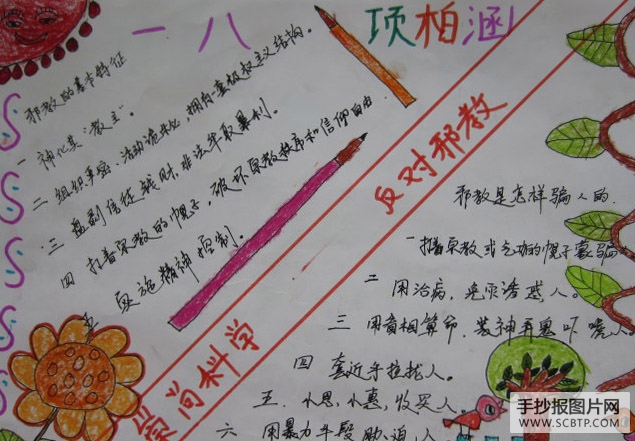 一 八 项柏涵
邪教的基本特征
一 神化美"教主"。
二 组织严密、活动诡秘,拥有一套极权主义结构。
三 盘剥信徒钱财,非法牟取暴利。
四 打着宗教的幌子,破坏宗教秩序和信仰自由
五 施精神控制。
崇尚科学
反对邪教
邪教是怎样骗人的.
一 打着宗教或气功的幌子蒙骗
二 用治病,免灾诱惑人。
三 用看相算命,装神弄鬼吓唬人
四 套近乎拉拢人。
五. 小恩,小惠,收买人。
六 用暴力手段胁迫人
手抄报图片网
WWW.SCBTP.COM